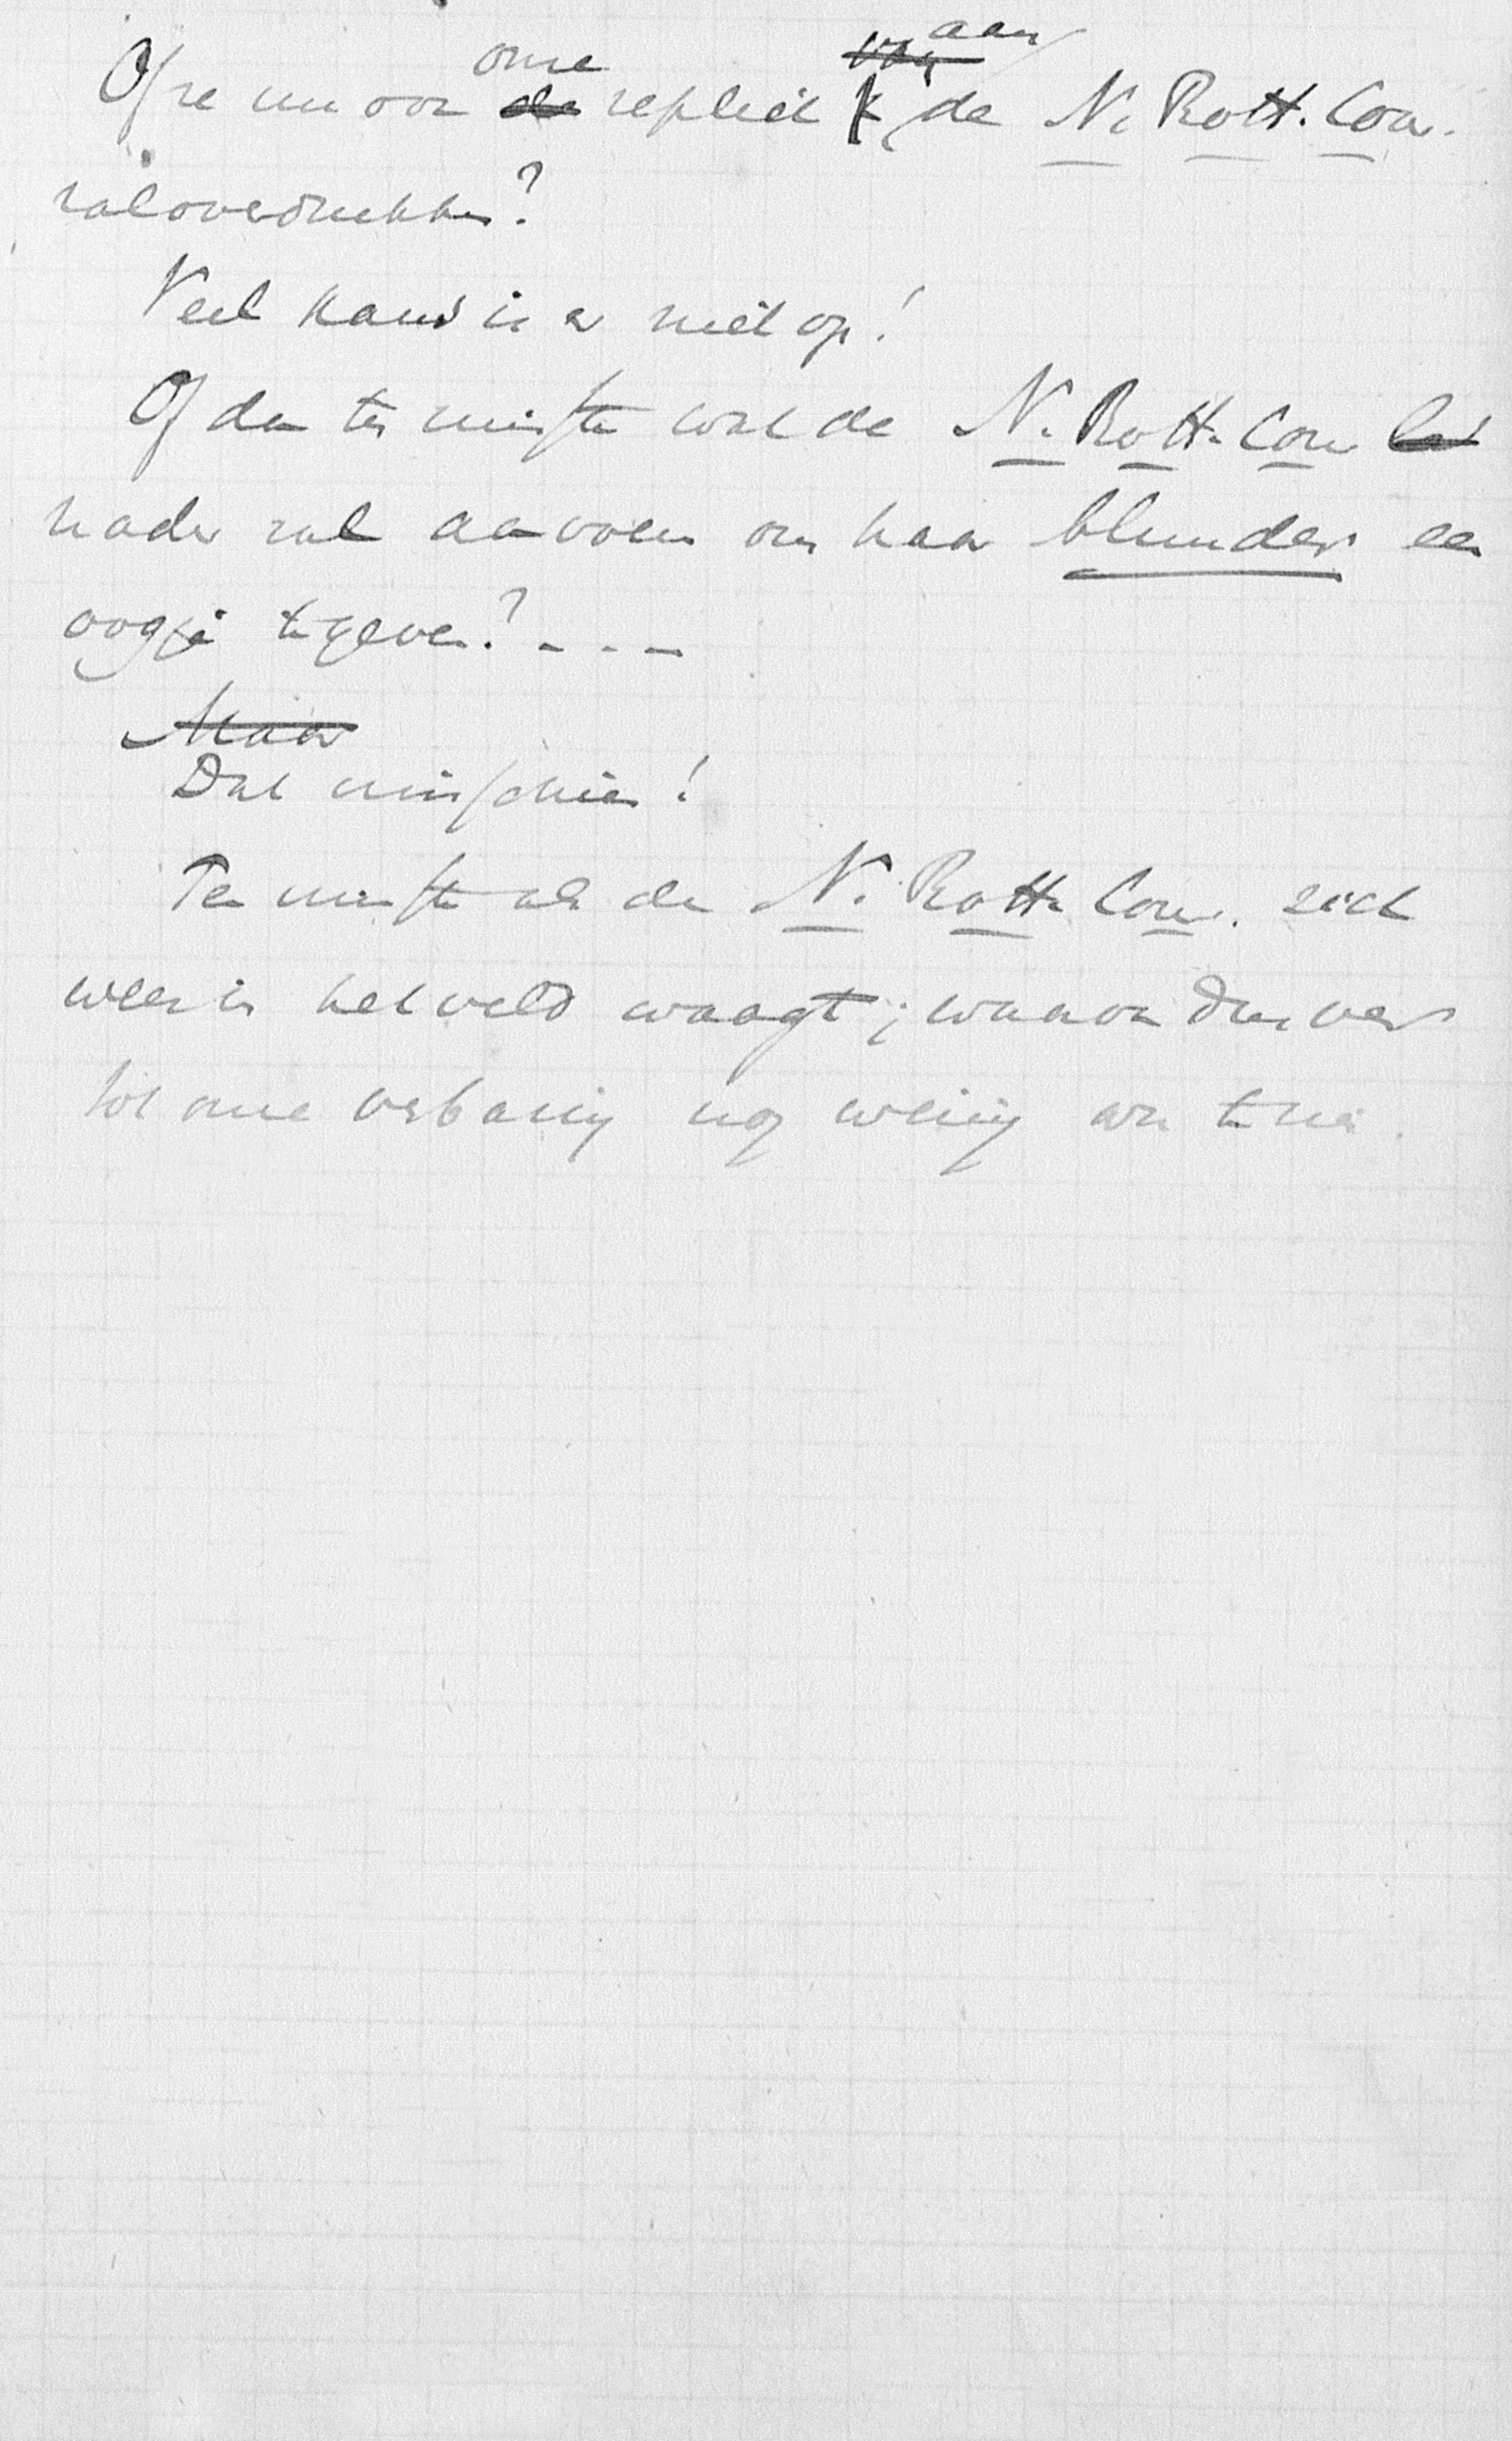 Of ze nu ook onze repliek aan de N. Rott. Cour.
zal overdrukken?
Veel kans is er niet op!
Of dan ten minste wat de N. Rott. Cour
nader zal aanvoeren om haar blunder een
oogje te geven? - - -
Maar
Dat misschien!
Ten minste als de N. Rott. Cour. zich
weer in het veld waagt; waarvan dusver
tot onze verbazing nog weinig van te zien.